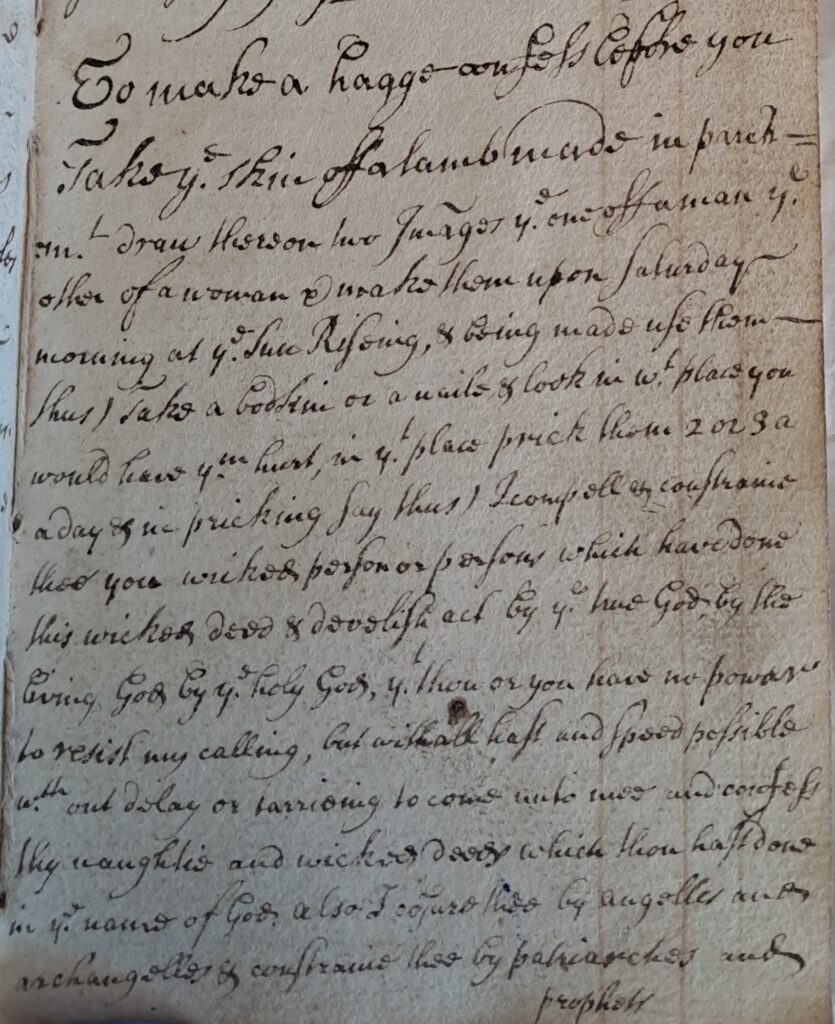 To make a hagge confess before you
Take yᵉ. skin off a lamb made in parch=
mᵗ. draw thereon two Images yᵉ. one off a man yᵉ.
other of a woman & make them upon Saturday
morning at yᵉ. Sun Riseing, & being made use them
thus) Take a bodkin or a naile & look in wᵗ. place you
would have yᵐ. hurt, in yᵗ. place prick them 2 or 3 a
a day & in pricking say thus) I compell & constraine
thee you wicked person or persons which have done
this wicked deed & develish act by yᵉ. true God, by the
living God by yᵉ. holy God, yᵗ. thou or you have no power
to resist my calling, but withall hast and speed possible
wᵗʰ. out delay or tarrieing to come unto mee and confess
thy naughtie and wicked deeds which thou hast done
in yᵉ. name of God, also I cōjure thee by angelles and
archangelles & constraine thee by patriarches and
prophets